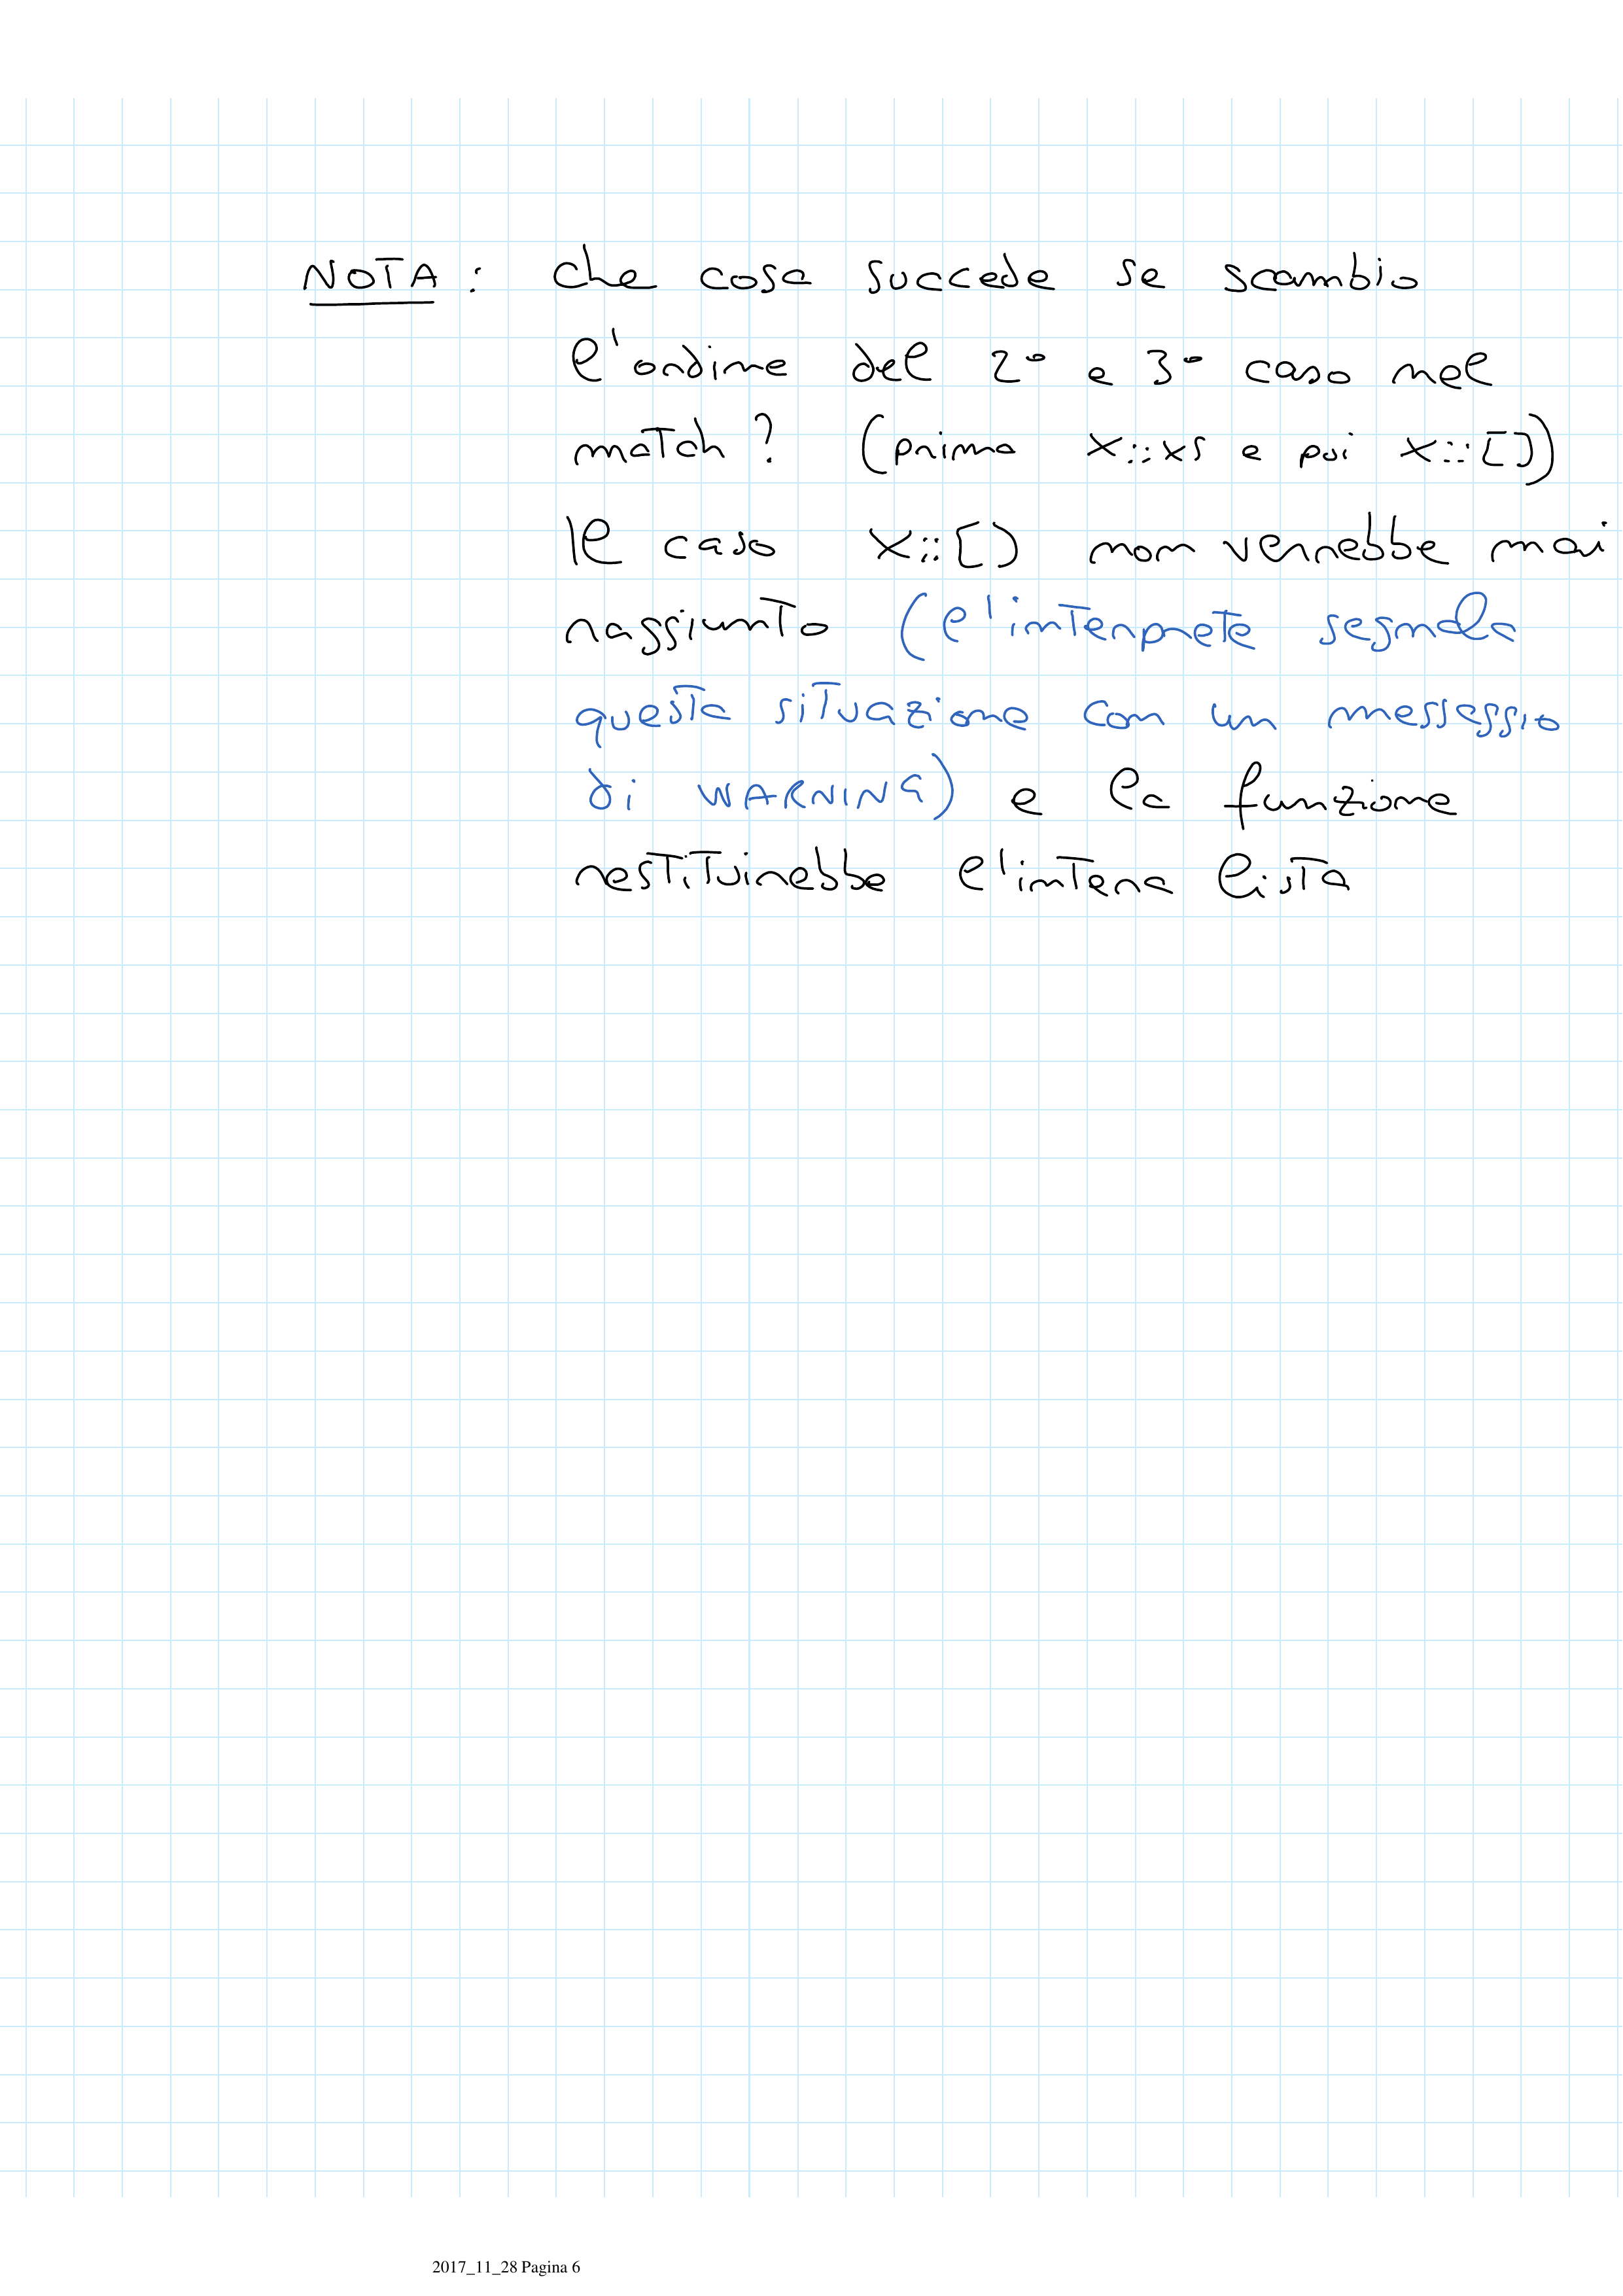 NOTA : che cosa succede se scambio
l'ordine del 2° e 3° caso nel
match? (prima x::xs e poi x::[])
Il caso x::[] non verrebbe mai
raggiunto (l'interprete segnala
questa situazione con un messaggio
di WARNING) e la funzione
restituirebbe l'intera lista
2017_11_28 Pagina 6